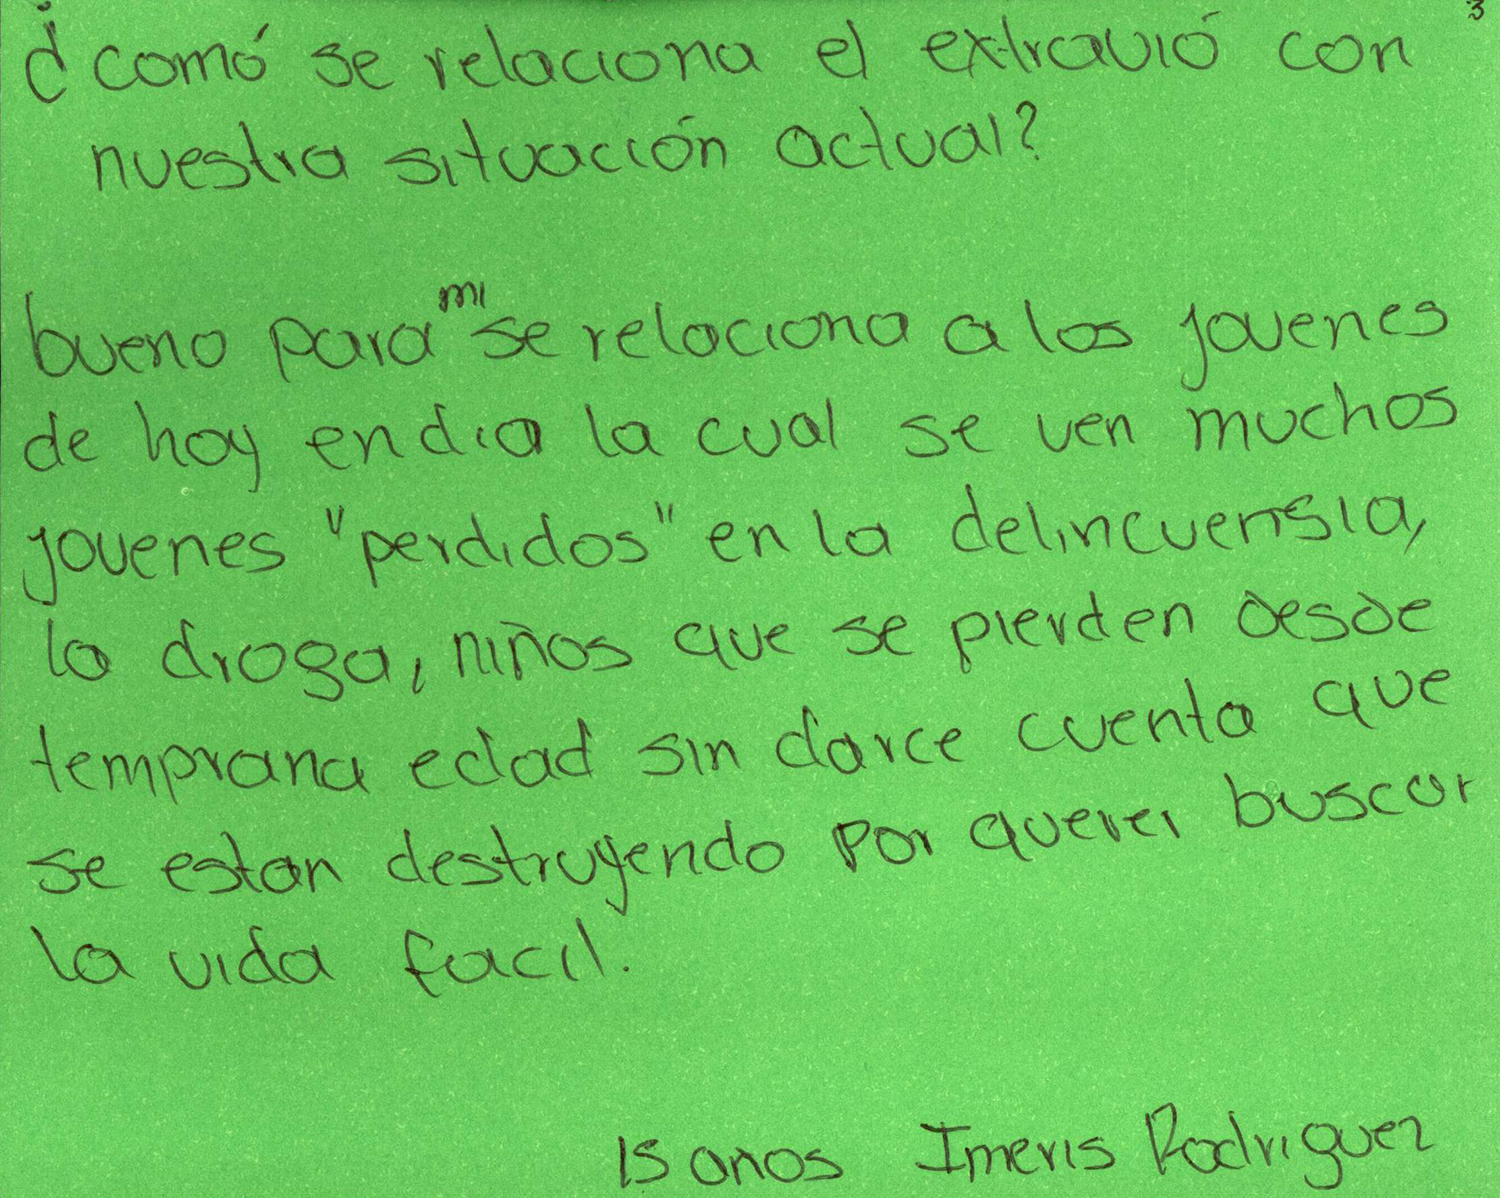 3
¿comó se relaciona el extravió con
nuestra situación actual?
bueno para mi se relaciona a los jovenes
de hoy en dia la cual se ven muchos
jovenes "perdidos" en la delincuensia,
la droga, niños que se pierden desde
temprana edad sin darce cuenta que
se estan destruyendo por querer buscar
la vida facil.
15 anos Imeris Rodriguez